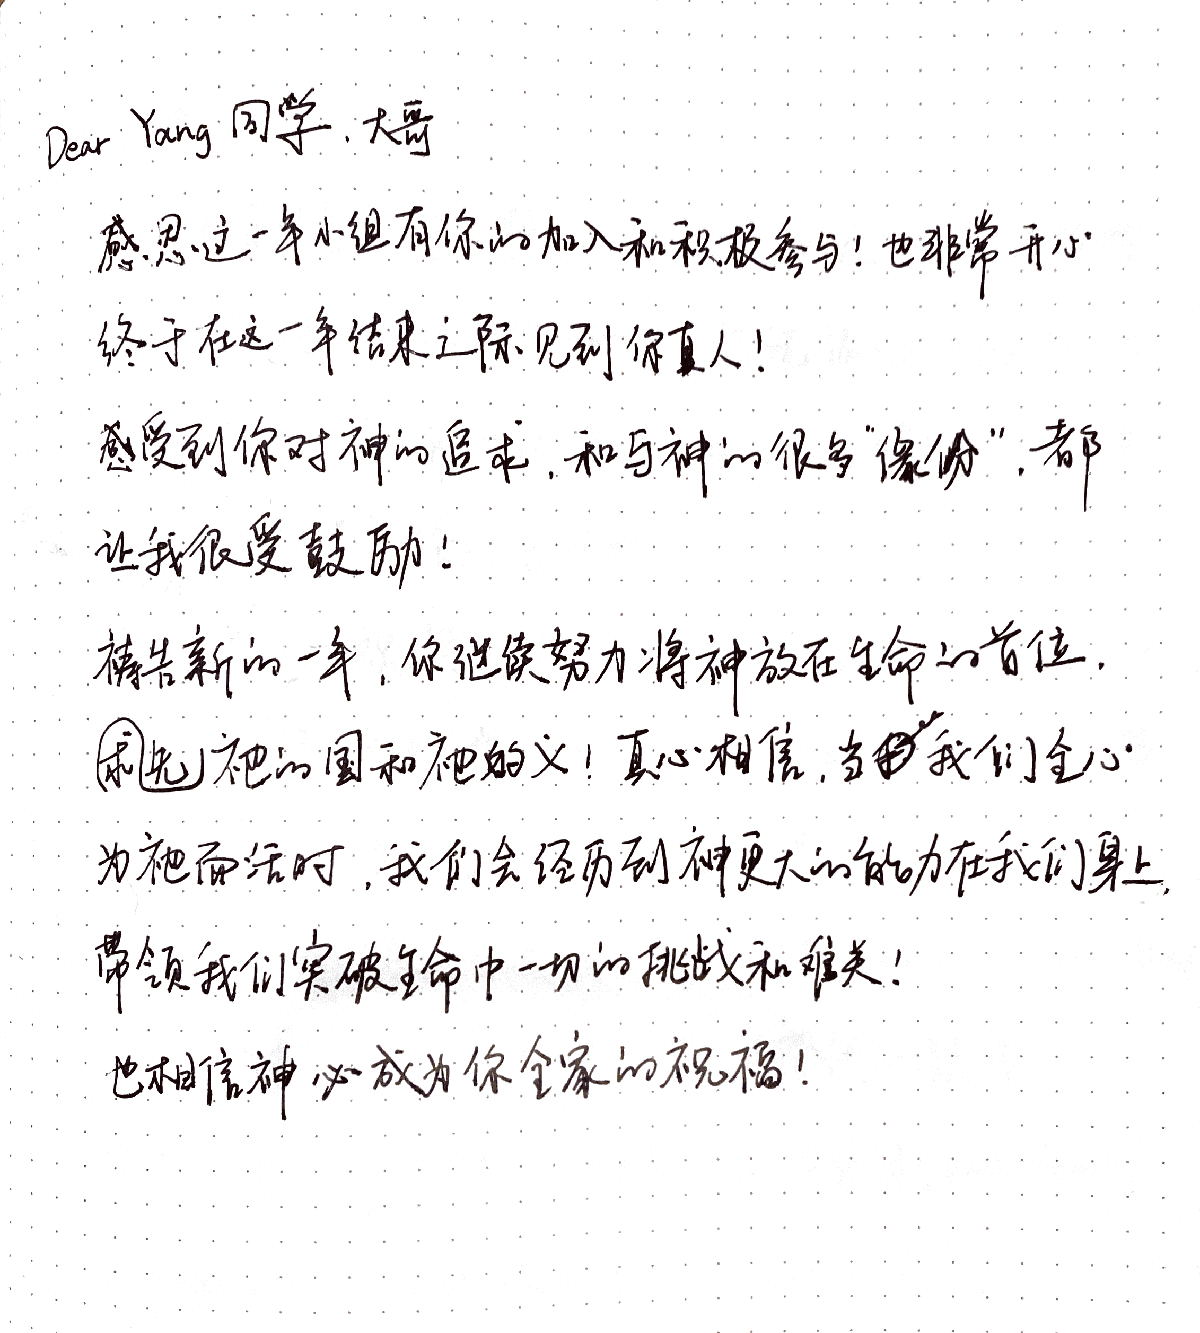 Dear Yang 同学、大哥
感恩这一年小组有你的加入和积极参与！也非常开心
终于在这一年结束之际见到你真人！
感受到你对神的追求，和与神的很多“缘份”，都
让我很受鼓励！
祷告新的一年，你继续努力将神放在生命的首位，
求先祂的国和祂的义！真心相信，当我们全心
为祂而活时，我们会经历到神更大的能力在我们身上，
带领我们突破生命中一切的挑战和难关！
也相信神必成为你全家的祝福！